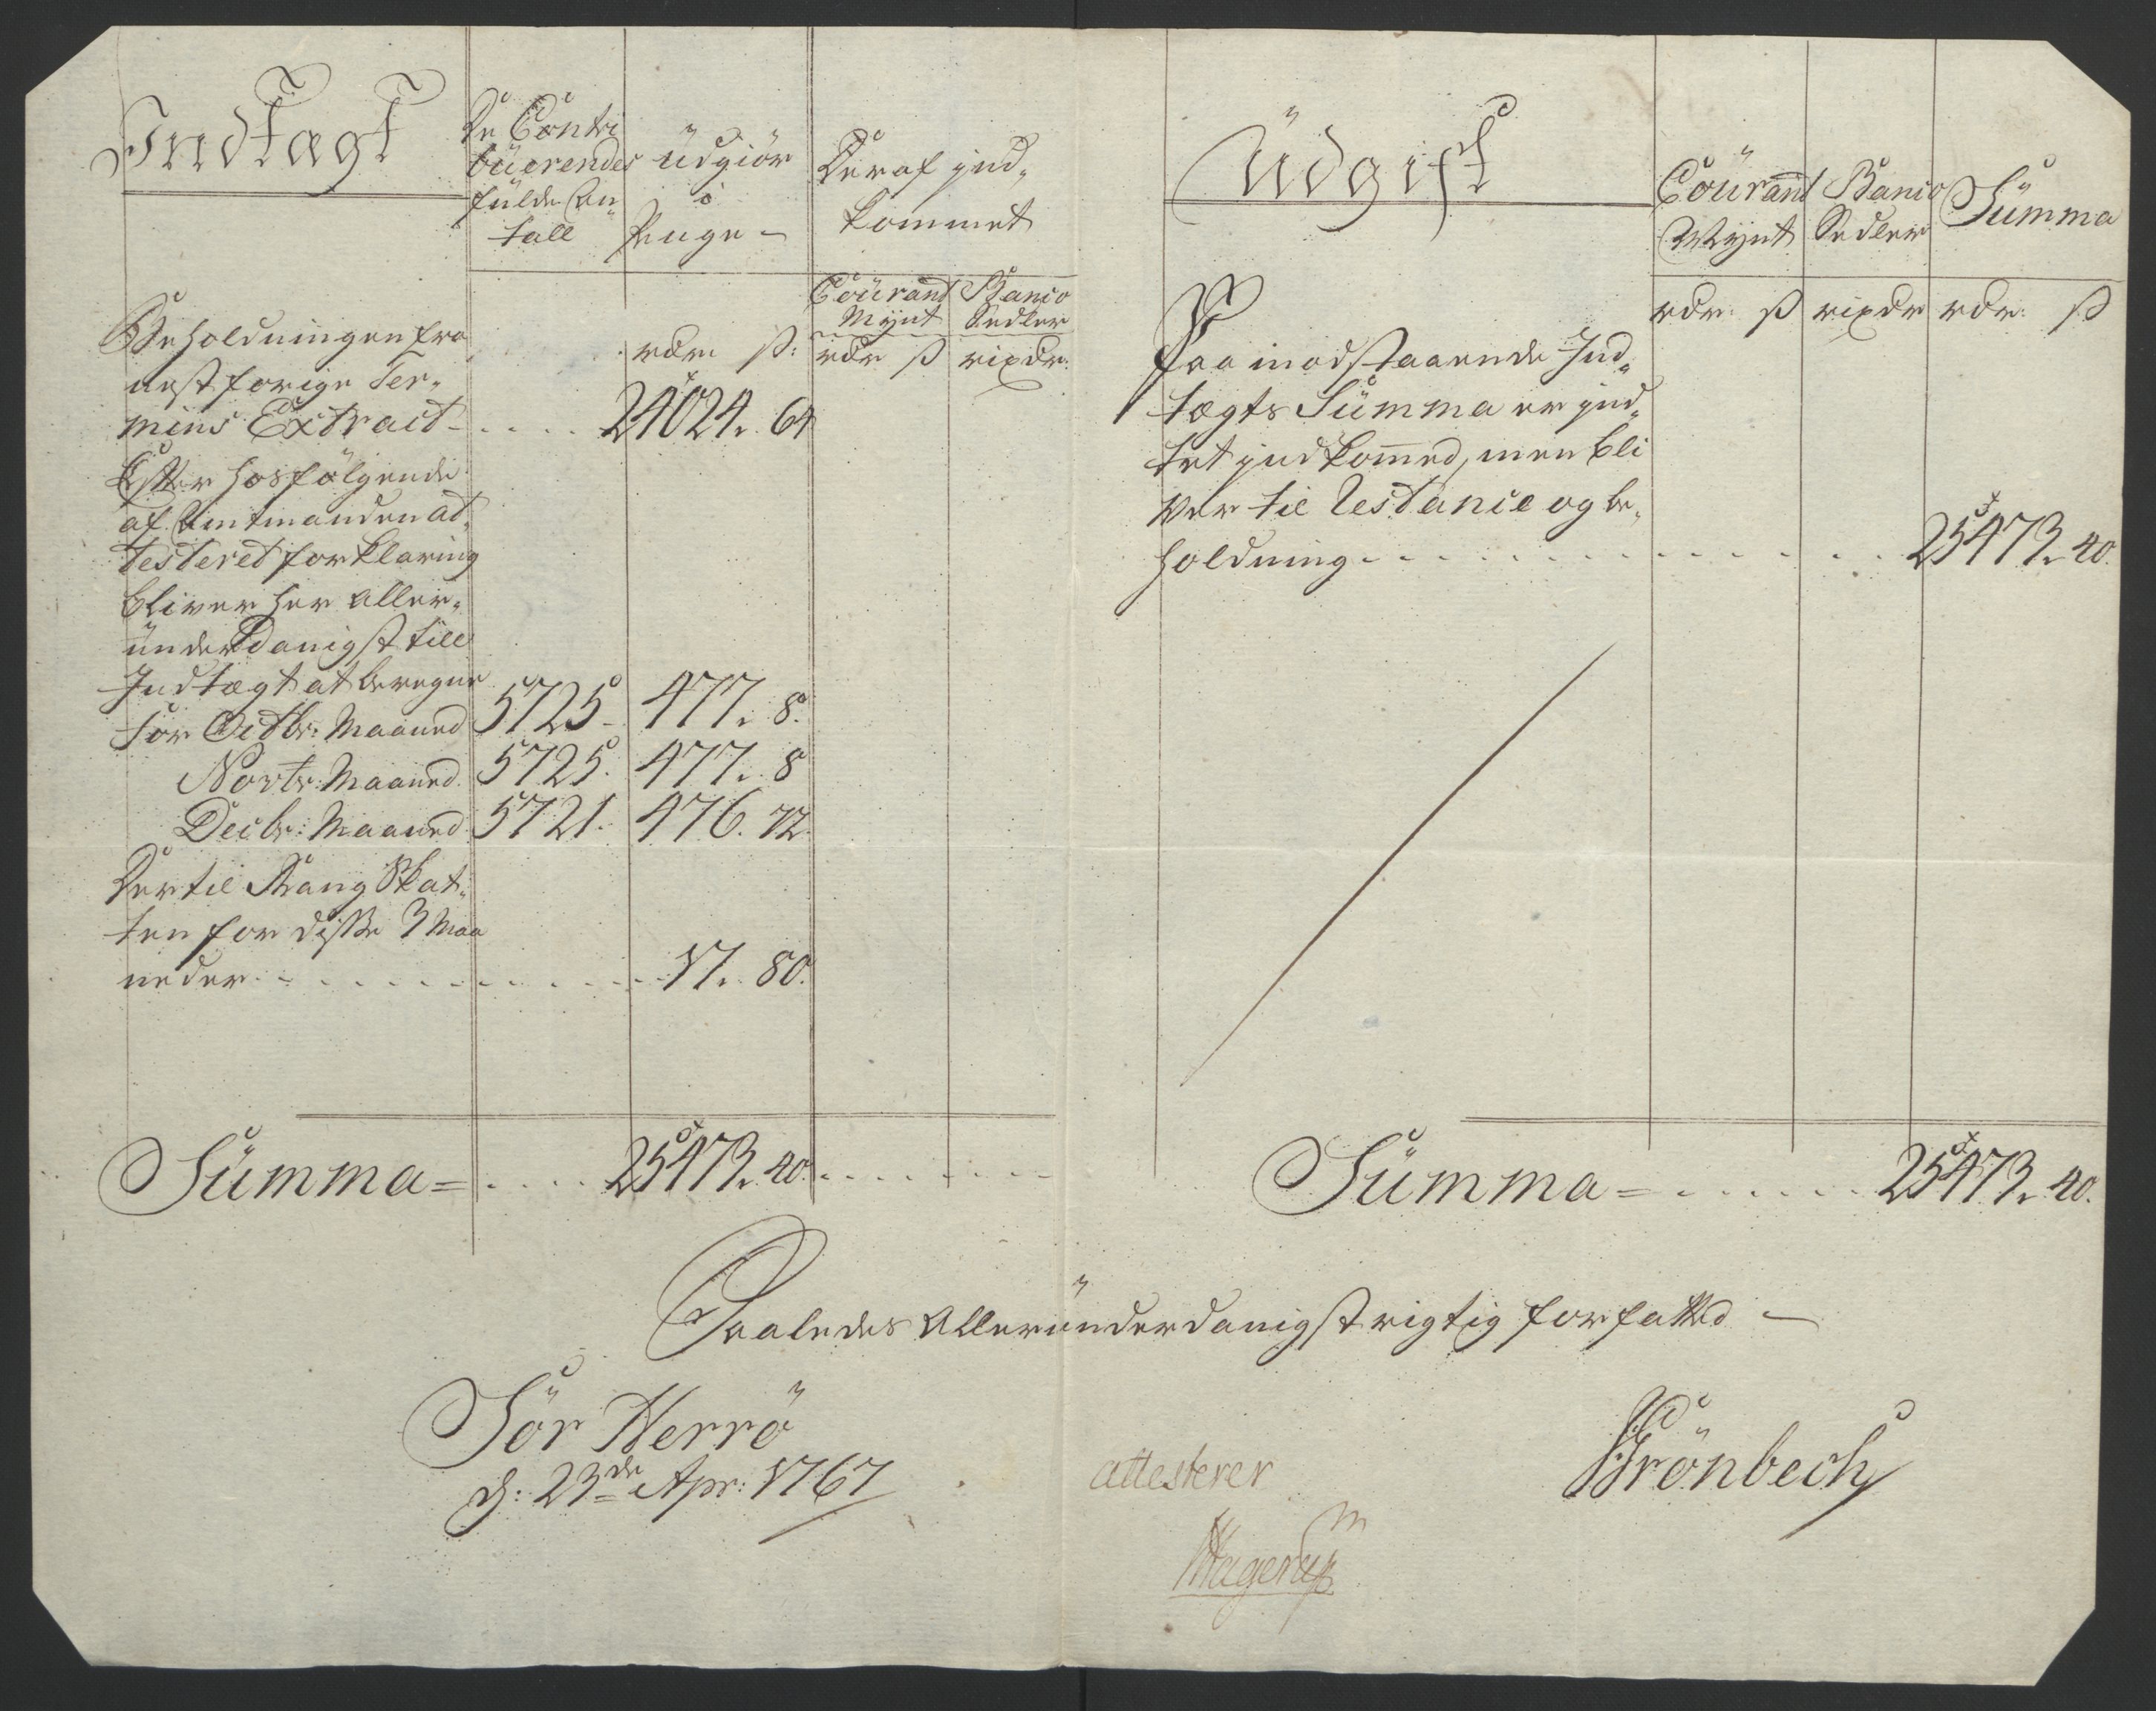 Indtagt
De Contri
büerendes
fulde An
tall
üdgiör
i
Penge
Deraf ind„
kommet
Courant
Mynt
Banco
Sedler
rdr: ß:
rdr ß
rixdr:
Beholdningen fra
nest forige Ter„
mins Extract 24024. 64
Efter hosfølgende
af Amtmanden at„
testeret forklaring
bliver her aller„
ünderdanigst till
Indtægt at beregne
for Octbr: Maaned 5725 477. 8.
Novbr: Maaned 5725. 477. 8
Decbr: Maaned 5721. 476. 72.
Dertil Rang Skat„
ten for disse 3 Maa
neder 17. 80.
Summa = 25473. 40.
Üdgift
Courant
Mynt
Banco
Sedler
Summa
rdr: ß
rixdr
rdr: ß
Paa modstaaende Ind„
tægts Summa er ind„
tet indkommed, men bli
ver til Restance og be„
holdning 25473. 40.
Summa = 25473. 40.
Saaledes Alleründerdanigst rigtig forfatted
Sör Herrö
d: 23de Apr: 1767
attesterer
Hagerup
Grönbech